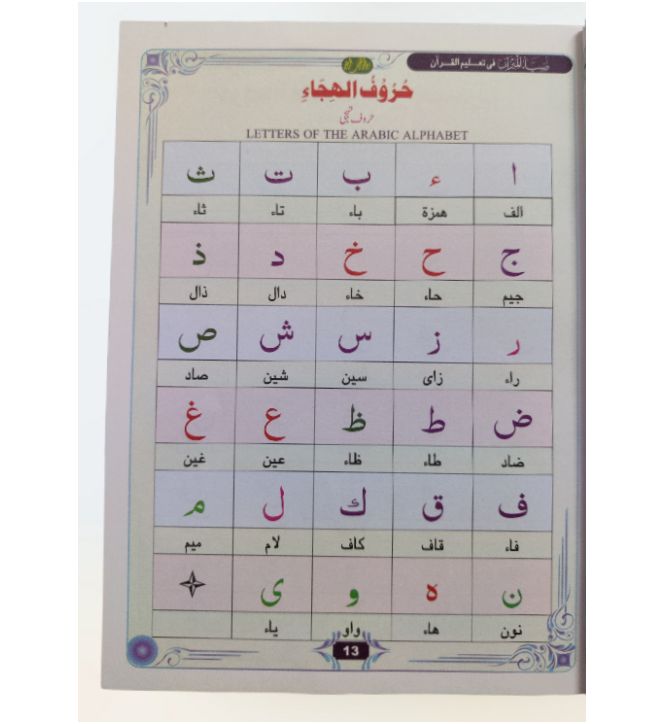 ضیاء القرآن فی تعلیم القرآن
حُرُوْفُ الْهِجَاءِ
حروف تہجی
LETTERS OF THE ARABIC ALPHABET
ا ء ب ت ث
الف همزة باء تاء ثاء
ج ح خ د ذ
جيم حاء خاء دال ذال
ر ز س ش ص
راء زاى سين شين صاد
ض ط ظ ع غ
ضاد طاء ظاء عين غين
ف ق ك ل م
فاء قاف كاف لام ميم
ن ه و ى
نون هاء واو ياء
13